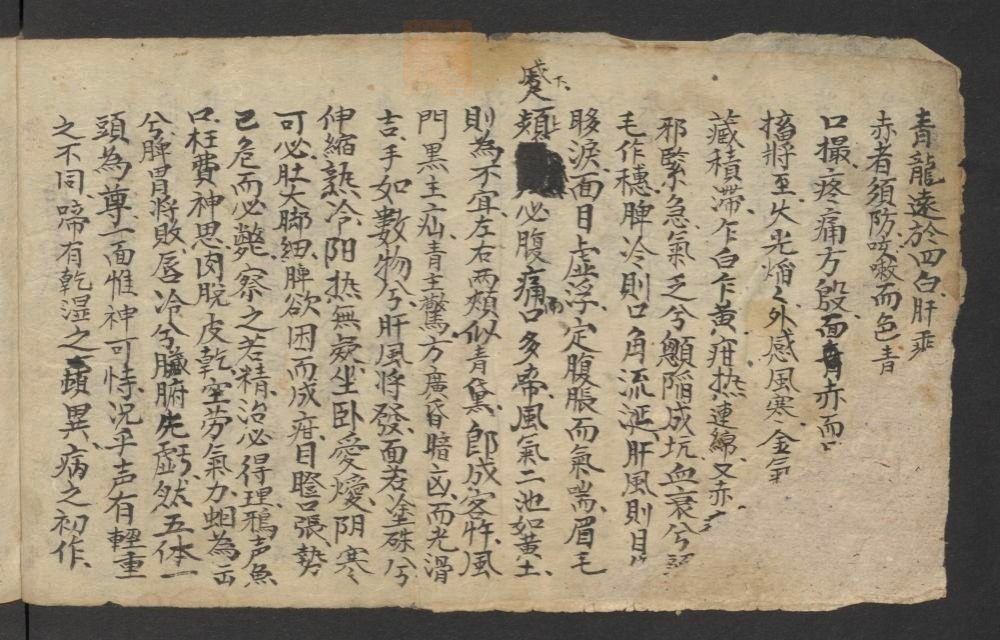 青龍遠於四白肝乘
赤者須防咳嗽而色青
口撮疼痛方殷面青赤而
搐將至火光焰々外感風寒金氣
藏積滯乍白乍黃疳热連綿又赤
邪緊急氣乏兮顖陷成坑血衰兮
毛作穗脾冷則口角流涎肝風則目
眵淚面目虛浮定腹脹而氣喘眉毛
頻蹙必腹痛而口多啼風氣二池如黃土
則為不宜左右兩頰似青黛即成客忤風
門黑主疝青主驚方廣昏暗凶而光滑
吉手如數物兮肝風將發面若塗硃兮
伸縮熱冷阳热無疑坐卧愛煖阴寒
可必肚大脚細脾欲困而成疳目瞪口張勢
已危而必斃察之若精治必得理鴉声魚
口枉費神思肉脫皮乾空劳氣力蛔為
兮脾胃將敗唇冷兮臟腑先虧然五体一
頭為尊一面惟神可恃況乎声有輕重
之不同啼有乾湿之頓異病之初作